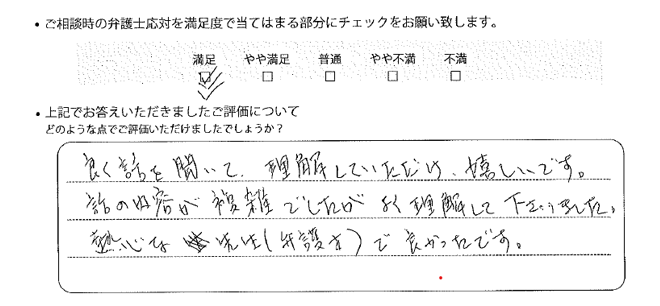 • ご相談時の弁護士応対を満足度で当てはまる部分にチェックをお願い致します。
満足 やや満足 普通 やや不満 不満
• 上記でお答えいただきましたご評価について
どのような点でご評価いただけましたでしょうか？
良く話を聞いて、理解していただけ、嬉しいです。
話の内容が複雑でしたがよく理解して下さいました。
熱心な先生(弁護士)で良かったです。